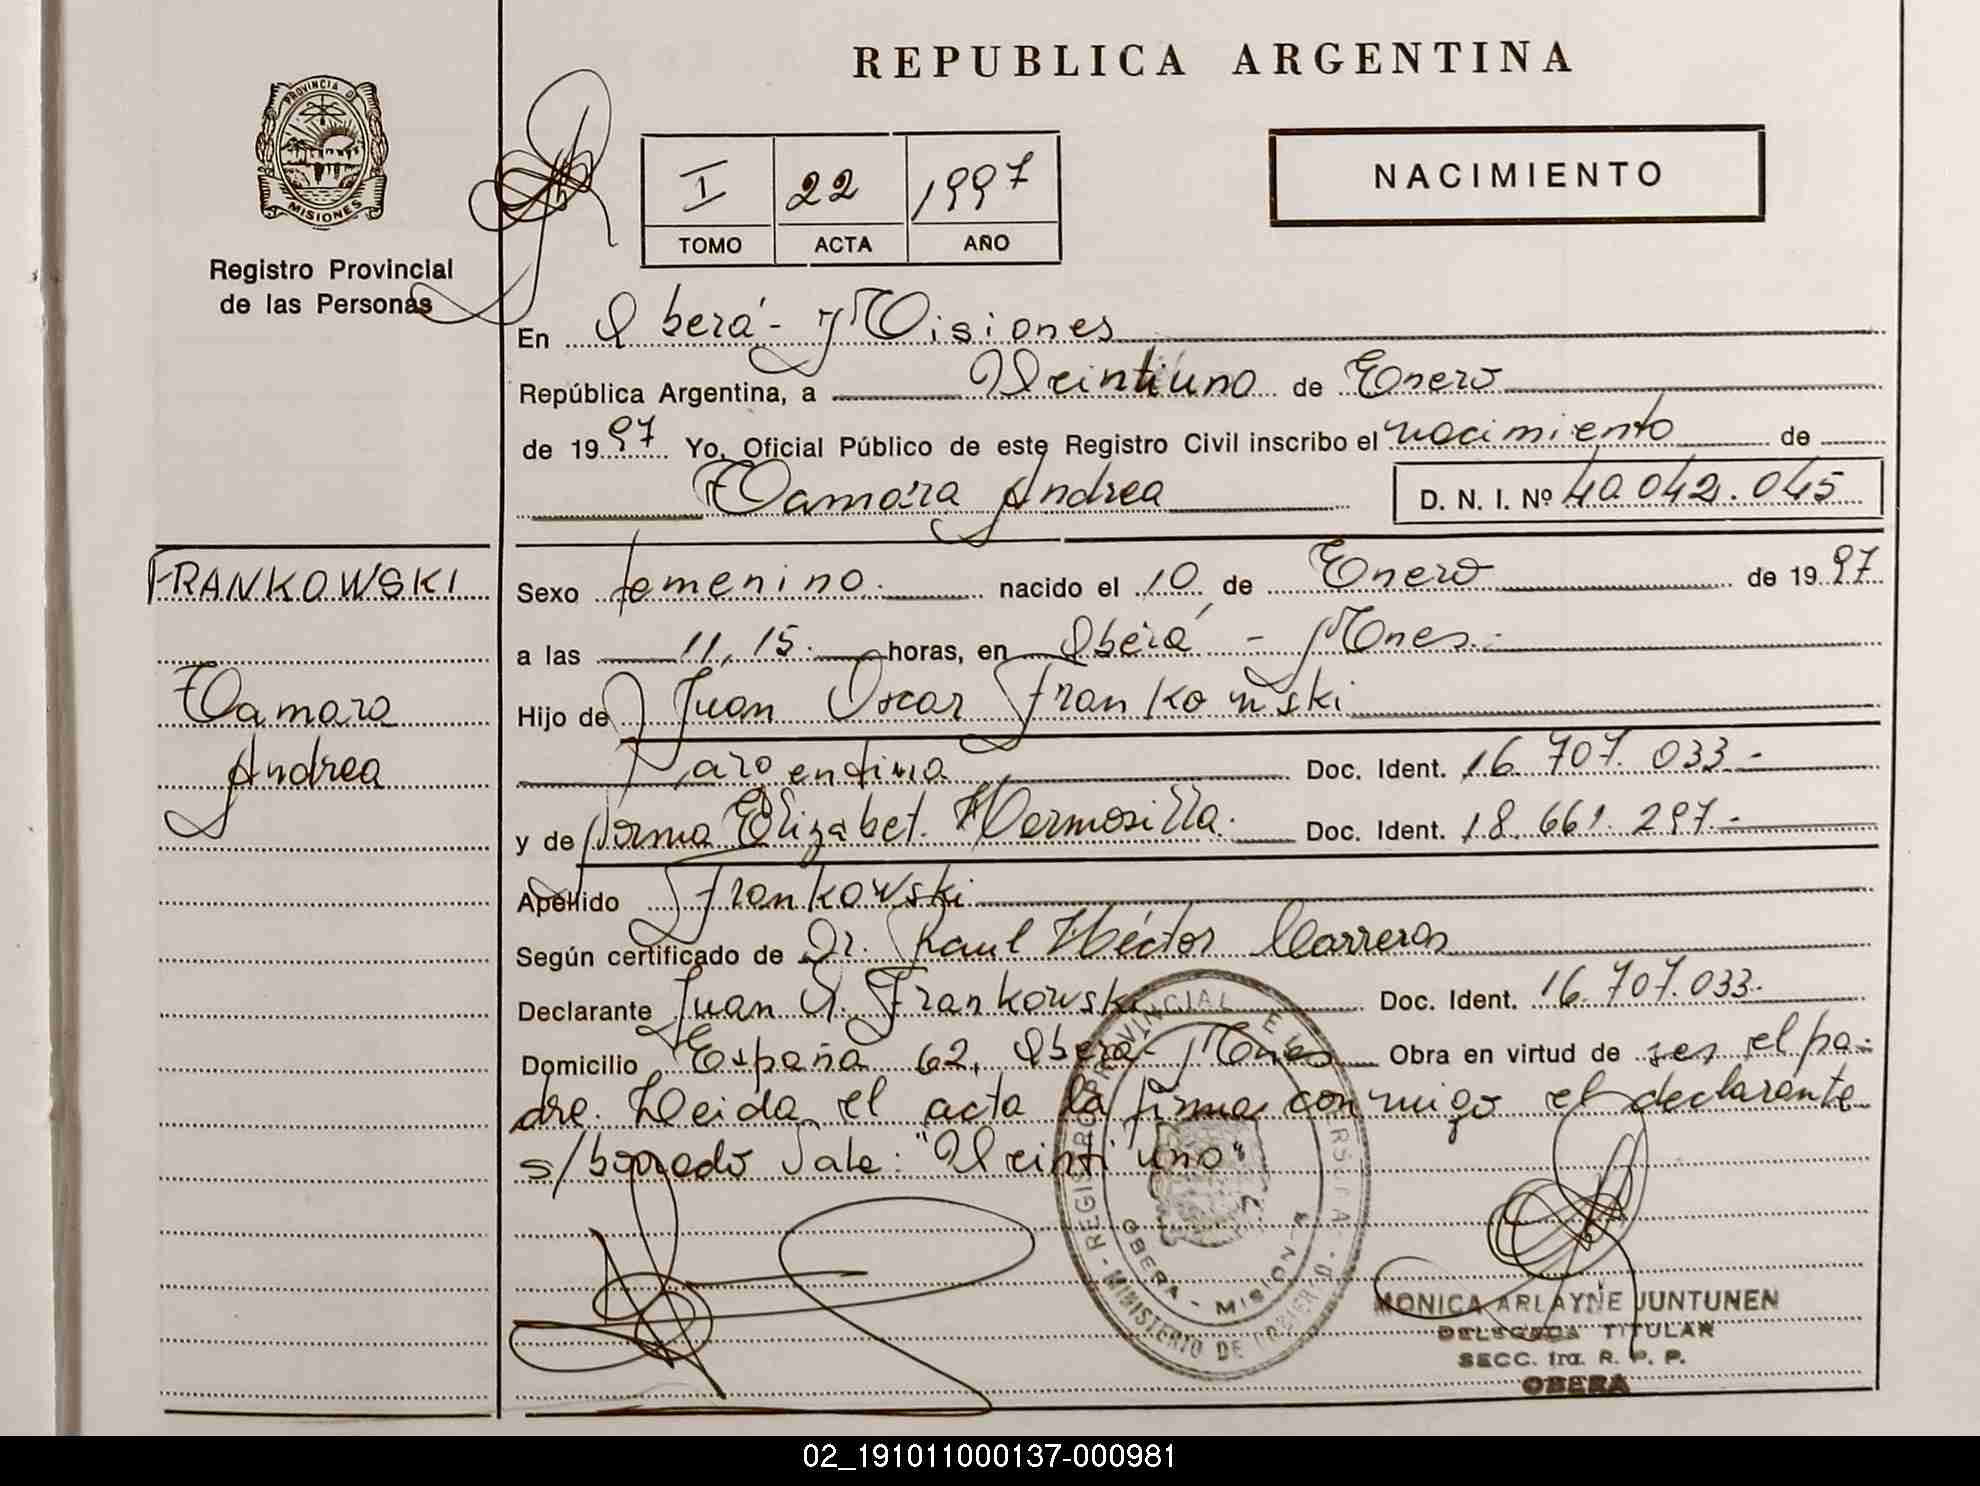 REPUBLICA ARGENTINA
PROVINCIA DE
MISIONES
Registro Provincial
de las Personas
I 22 1997
TOMO ACTA AÑO
NACIMIENTO
En Oberá - Misiones
República Argentina, a Veintiuno de Enero
de 1997 Yo, Oficial Público de este Registro Civil inscribo el nacimiento de
Tamara Andrea D. N. I. Nº 40.042.045
FRANKOWSKI
Tamara
Andrea
Sexo femenino. nacido el 10 de Enero de 1997
a las 11,15. horas, en Oberá - Mnes.
Hijo de Juan Oscar Frankowski
argentina Doc. Ident. 16.707.033.-
y de Norma Elizabet Hermosilla. Doc. Ident. 18.661.297.-
Apellido Frankowski
Según certificado de Dr. Raul Héctor Carreras
Declarante Juan O. Frankowski Doc. Ident. 16.707.033.
Domicilio España 62, Oberá - Mnes Obra en virtud de ser el pa-
dre. Leida el acta la firma conmigo el declarante
s/borrado Vale: "Veintiuno"
REGISTRO PROVINCIAL DE LAS PERSONAS
OBERA - MISIONES
MINISTERIO DE GOBIERNO
MONICA ARLAYNE JUNTUNEN
DELEGADA TITULAR
SECC. 1ra. R. P. P.
OBERA
02_191011000137-000981